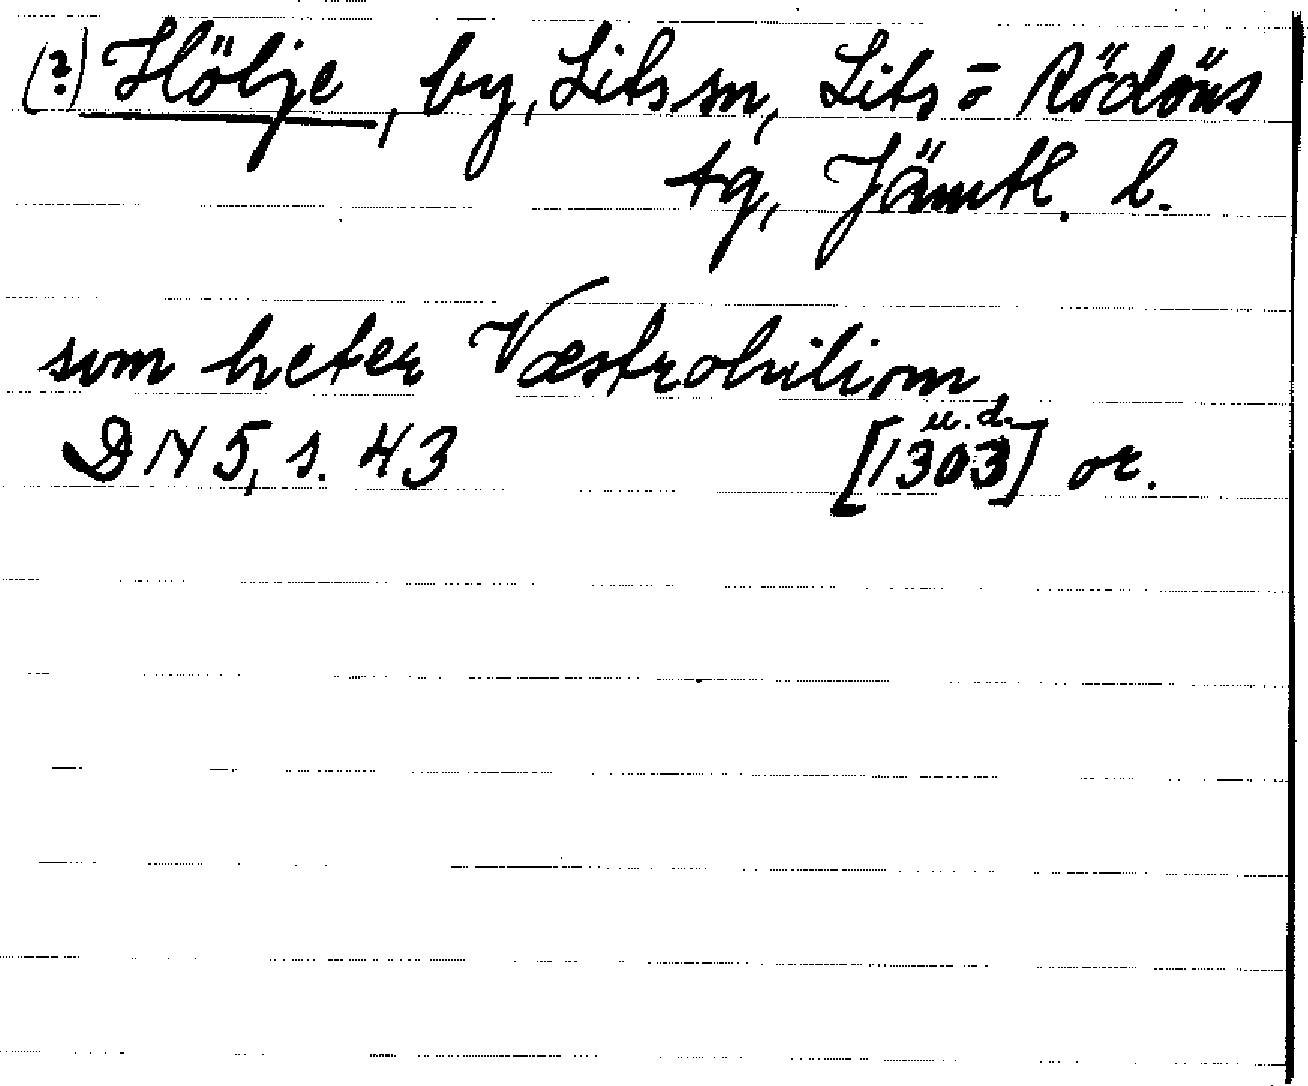 (?) Hölje, by, Lits sn, Lits = Rödöns
tg, Jämtl. l.
som heter Væstrohiliom
u.d.
DN 5, s. 43 [1303] or.